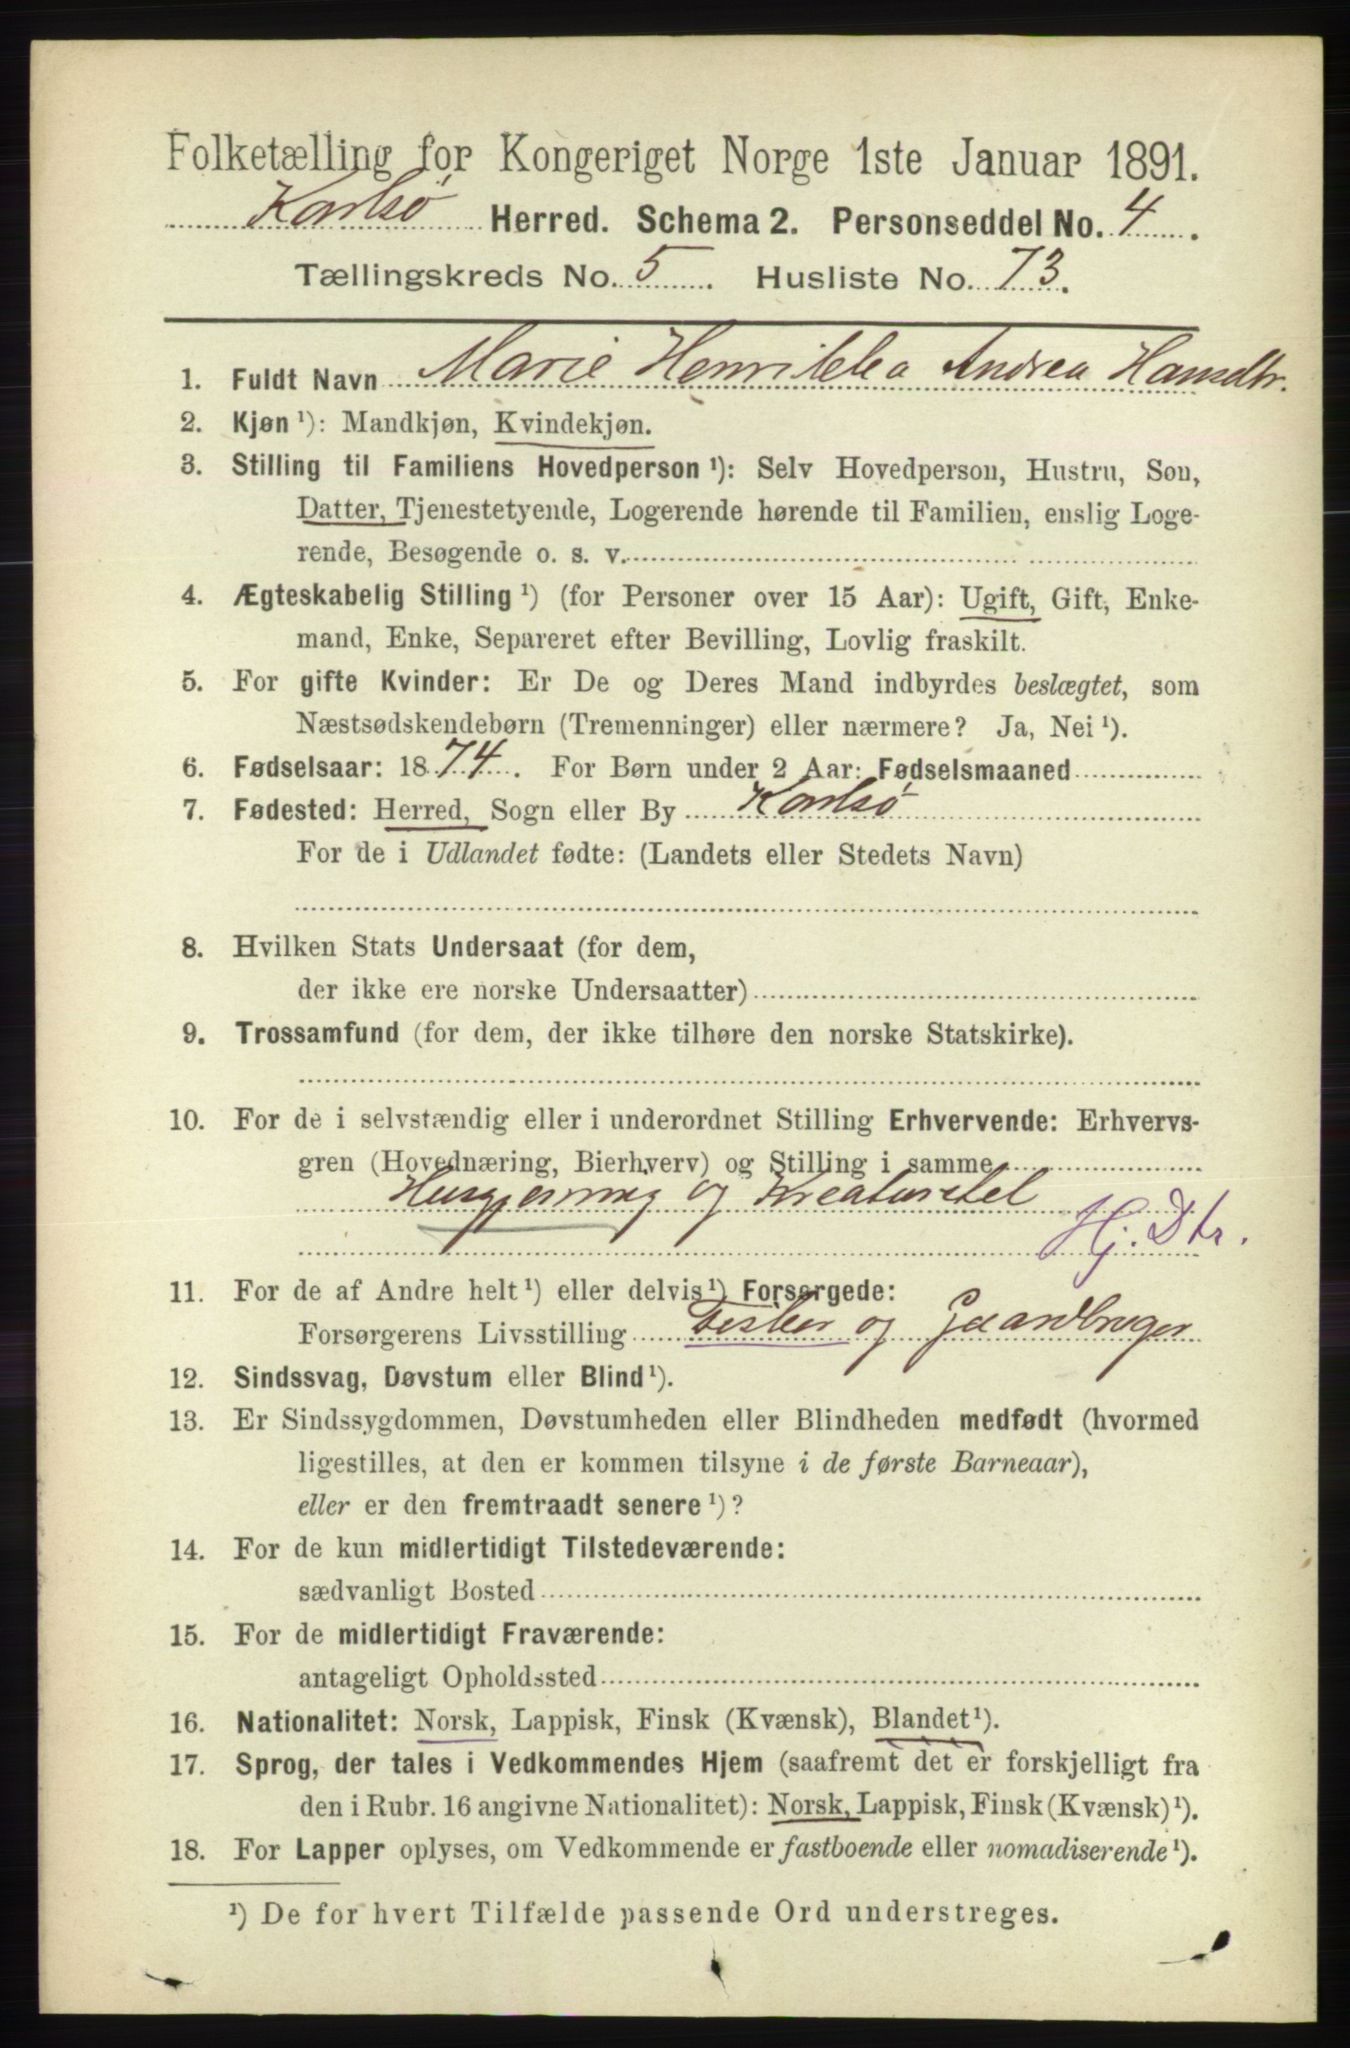 Folketælling for Kongeriget Norge 1ste Januar 1891.
Karlsø Herred. Schema 2. Personseddel No. 4.
Tællingskreds No. 5. Husliste No. 73.
1. Fuldt Navn Marie Henrikka Andrea Hansdtr.
2. Kjøn ¹): Mandkjøn, Kvindekjøn.
3. Stilling til Familiens Hovedperson ¹): Selv Hovedperson, Hustru, Søn,
Datter, Tjenestetyende, Logerende hørende til Familien, enslig Loge-
rende, Besøgende o. s. v.
4. Ægteskabelig Stilling ¹) (for Personer over 15 Aar): Ugift, Gift, Enke-
mand, Enke, Separeret efter Bevilling, Lovlig fraskilt.
5. For gifte Kvinder: Er De og Deres Mand indbyrdes beslægtet, som
Næstsødskendebørn (Tremenninger) eller nærmere? Ja, Nei ¹).
6. Fødselsaar: 1874. For Børn under 2 Aar: Fødselsmaaned
7. Fødested: Herred, Sogn eller By Karlsø
For de i Udlandet fødte: (Landets eller Stedets Navn)
8. Hvilken Stats Undersaat (for dem,
der ikke ere norske Undersaatter)
9. Trossamfund (for dem, der ikke tilhøre den norske Statskirke).
10. For de i selvstændig eller i underordnet Stilling Erhvervende: Erhvervs-
gren (Hovednæring, Bierhverv) og Stilling i samme
Husgjerning og Kreaturstel
Hj. Dtr.
11. For de af Andre helt ¹) eller delvis ¹) Forsørgede:
Forsørgerens Livsstilling Fisker og Gaardbruger
12. Sindssvag, Døvstum eller Blind ¹).
13. Er Sindssygdommen, Døvstumheden eller Blindheden medfødt (hvormed
ligestilles, at den er kommen tilsyne i de første Barneaar),
eller er den fremtraadt senere ¹)?
14. For de kun midlertidigt Tilstedeværende:
sædvanligt Bosted
15. For de midlertidigt Fraværende:
antageligt Opholdssted
16. Nationalitet: Norsk, Lappisk, Finsk (Kvænsk), Blandet ¹).
17. Sprog, der tales i Vedkommendes Hjem (saafremt det er forskjelligt fra
den i Rubr. 16 angivne Nationalitet): Norsk, Lappisk, Finsk (Kvænsk) ¹).
18. For Lapper oplyses, om Vedkommende er fastboende eller nomadiserende ¹).
¹) De for hvert Tilfælde passende Ord understreges.